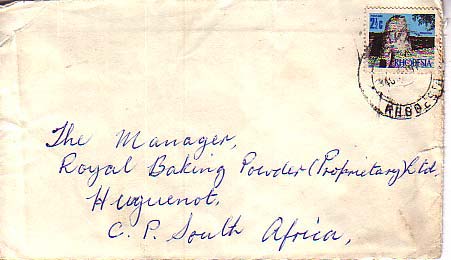 2½c
RHODESIA
RHODESIA
The Manager,
Royal Baking Powder (Proprietary) Ltd,
Huguenot.
C. P. South Africa,